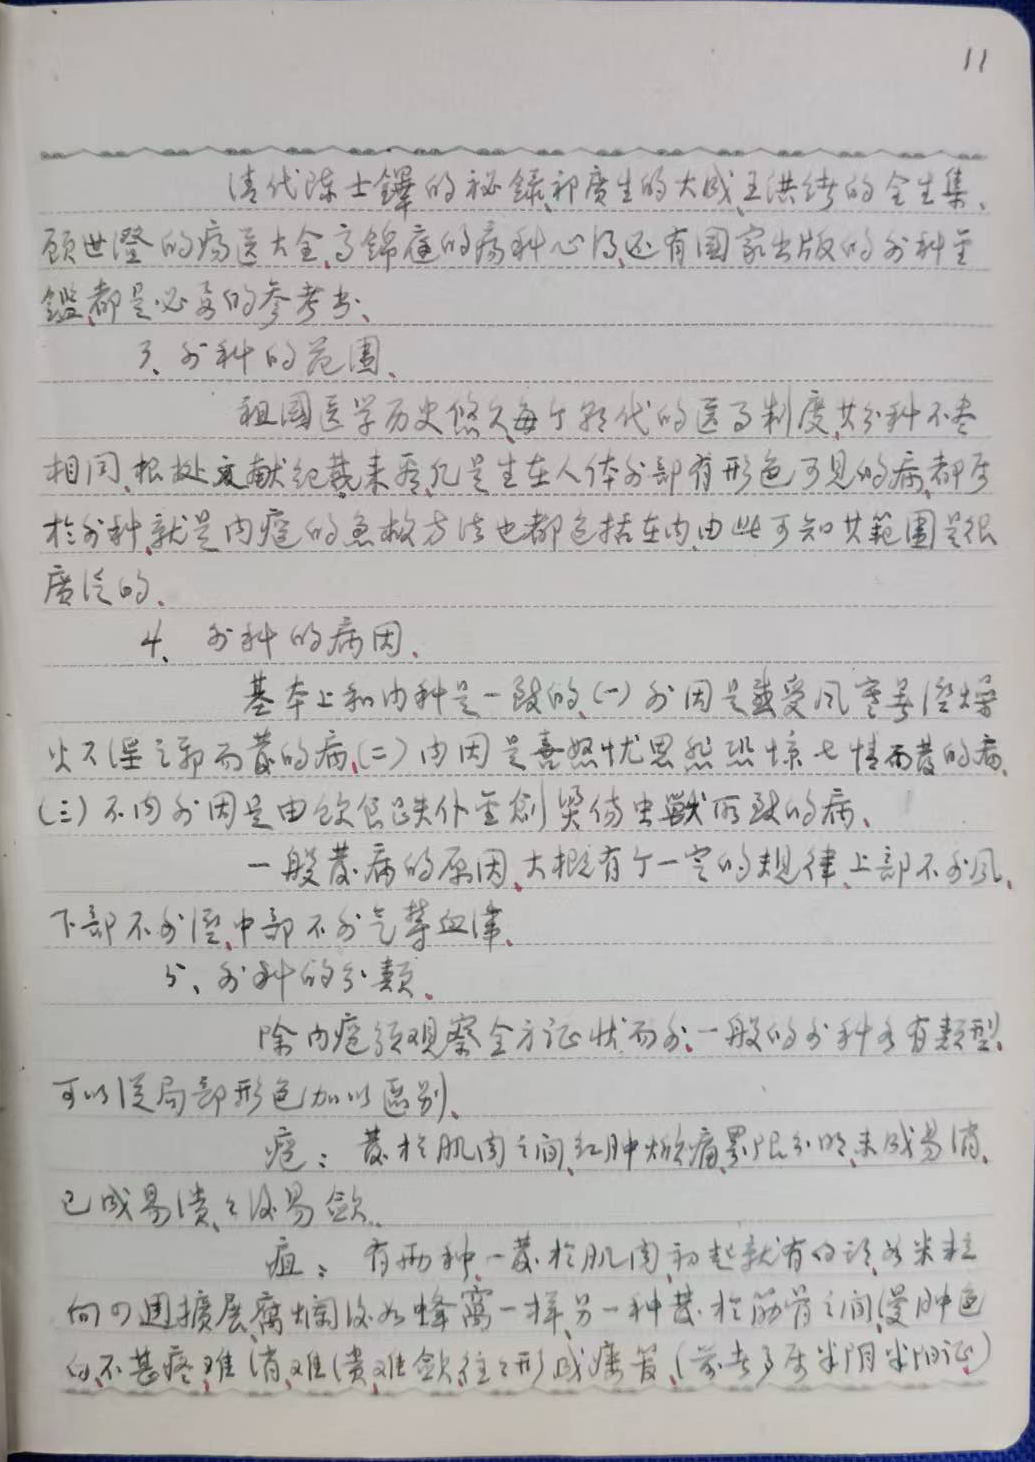 11
清代陈士鐸的祕錄、祁廣生的大成、王洪绪的全生集、
顾世澄的瘍医大全、高錦庭的瘍科心得、还有國家出版的外科金
鑑、都是必要的参考书、
3、外科的范圍、
祖國医学历史悠久、每个朝代的医事制度、其分科不尽
相同、根據文献纪载来看、凡是生在人体外部有形色可見的病、都屬
於外科、就是内癰的急救方法也都包括在内、由此可知其範圍是很
廣泛的、
4、外科的病因、
基本上和内科是一致的、(一)外因是感受风寒暑湿燥
火不淫之邪而發的病、(二)内因是喜怒忧思悲恐惊七情而發的病、
(三)不内外因是由飲食跌仆金創獎伤虫獸所致的病、
一般發病的原因、大概有个一定的规律、上部不外风、
下部不外湿、中部不外气鬱血滞、
5、外科的分類、
除内癰須观察全方证状而外、一般的外科各有類型、
可以從局部形色加以區别、
癰：發於肌肉之间、红肿焮痛、界限分明、未成易消、
已成易潰、々後易斂、
疽：有兩种、一發於肌肉、初起就有白头、如米粒
向四週擴展、腐爛後如蜂窩一样、另一种發於筋骨之间、漫肿色
白、不甚疼、难消、难潰、难斂、往々形成瘘管、(前者多屬半阴半阳证)